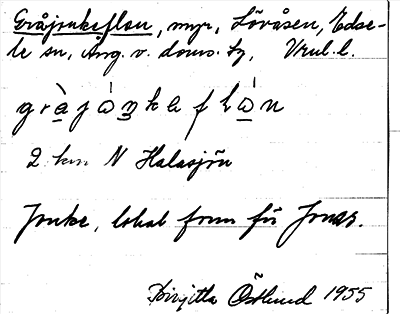 Gråjonkeflon, myr, Lövåsen, Edse-
le sn, Ång. v. doms. tg,
gràjåṉkeflån
2 km N Halasjön
Jonke, lokal form för Jonas.
Birgitta Östlund 1955